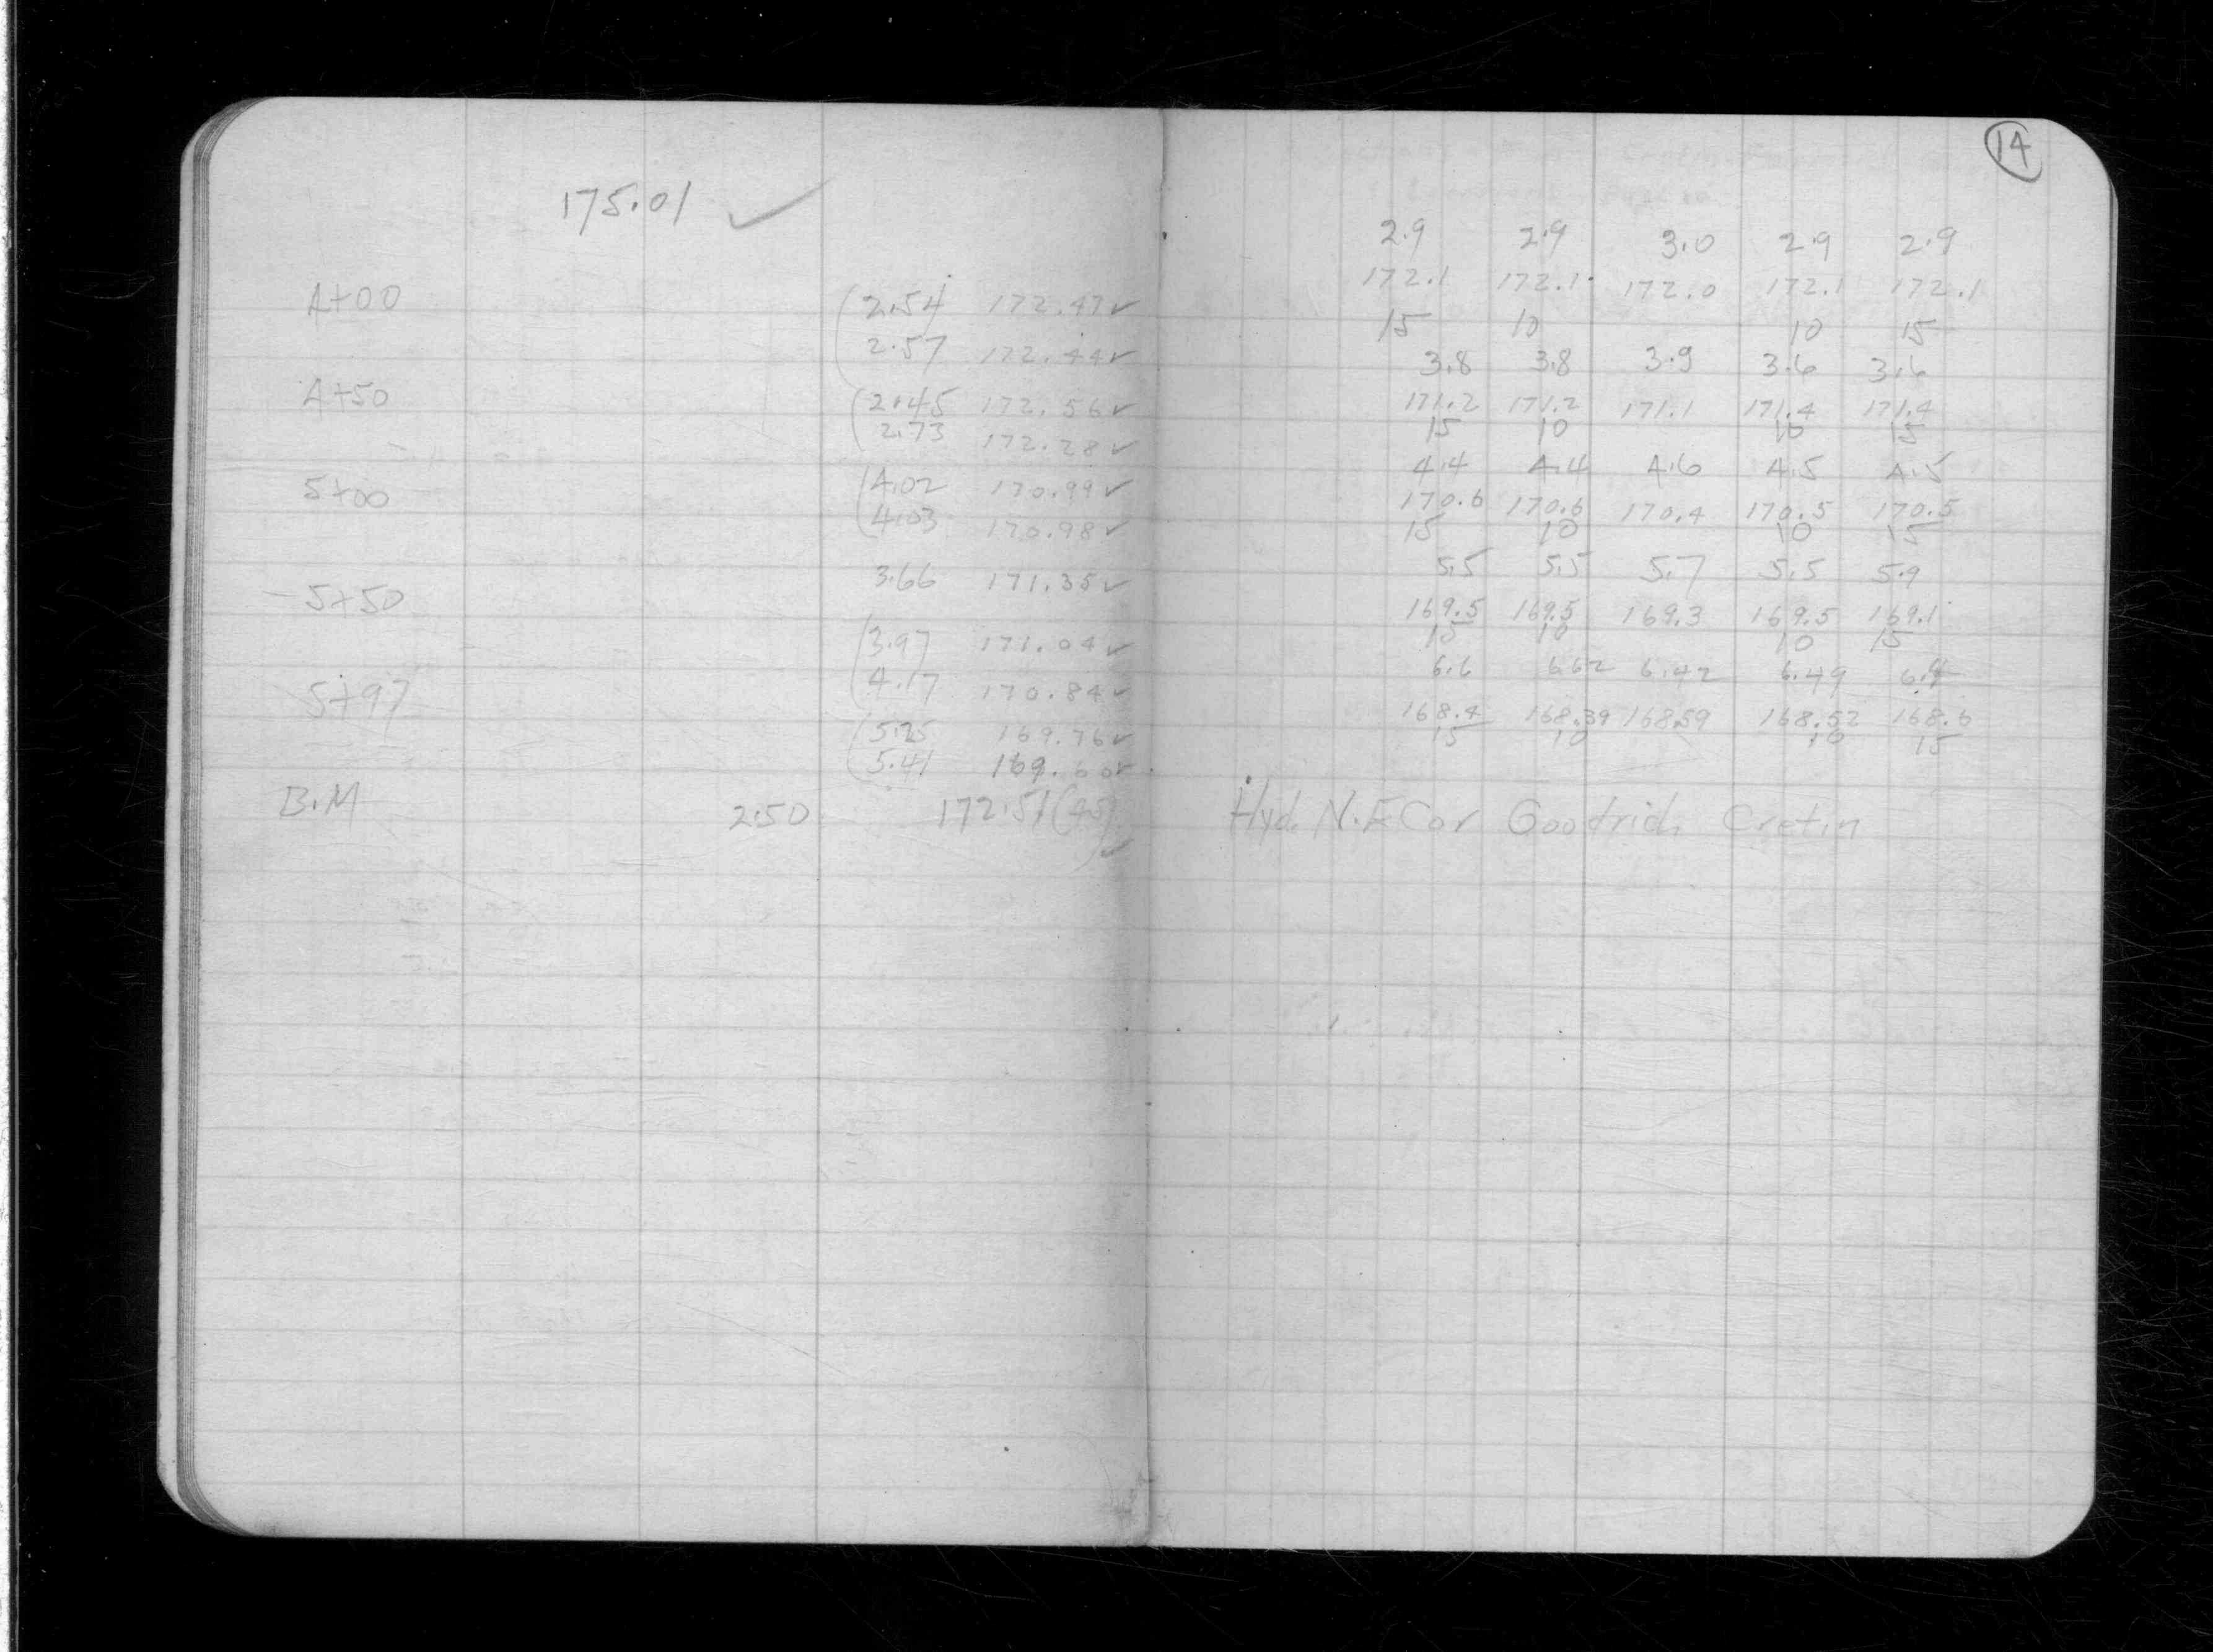 14
175.01 ✓
2.9 2.9 3.0 2.9 2.9
4+00 (2.54 172.47✓ 172.1 172.1 172.0 172.1 172.1
2.57 172.44✓ 15 10 10 15
3.8 3.8 3.9 3.6 3.6
4+50 (2.45 172.56✓ 171.2 171.2 171.1 171.4 171.4
2.73 172.28✓ 15 10 10 15
4.4 4.4 4.6 4.5 4.5
5+00 (4.02 170.99✓ 170.6 170.6 170.4 170.5 170.5
4.03 170.98✓ 15 10 10 15
3.66 171.35✓ 5.5 5.5 5.7 5.5 5.9
5+50 169.5 169.5 169.3 169.5 169.1
(3.97 171.04✓ 15 10 10 15
4.17 170.84✓ 6.6 6.62 6.42 6.49 6.4
5+97 168.4 168.39 168.59 168.52 168.6
(5.25 169.76✓ 15 10 10 15
5.41 169.60✓
B.M 2.50 172.51 (45) ✓ Hyd. N.E Cor Goodrich Cretin